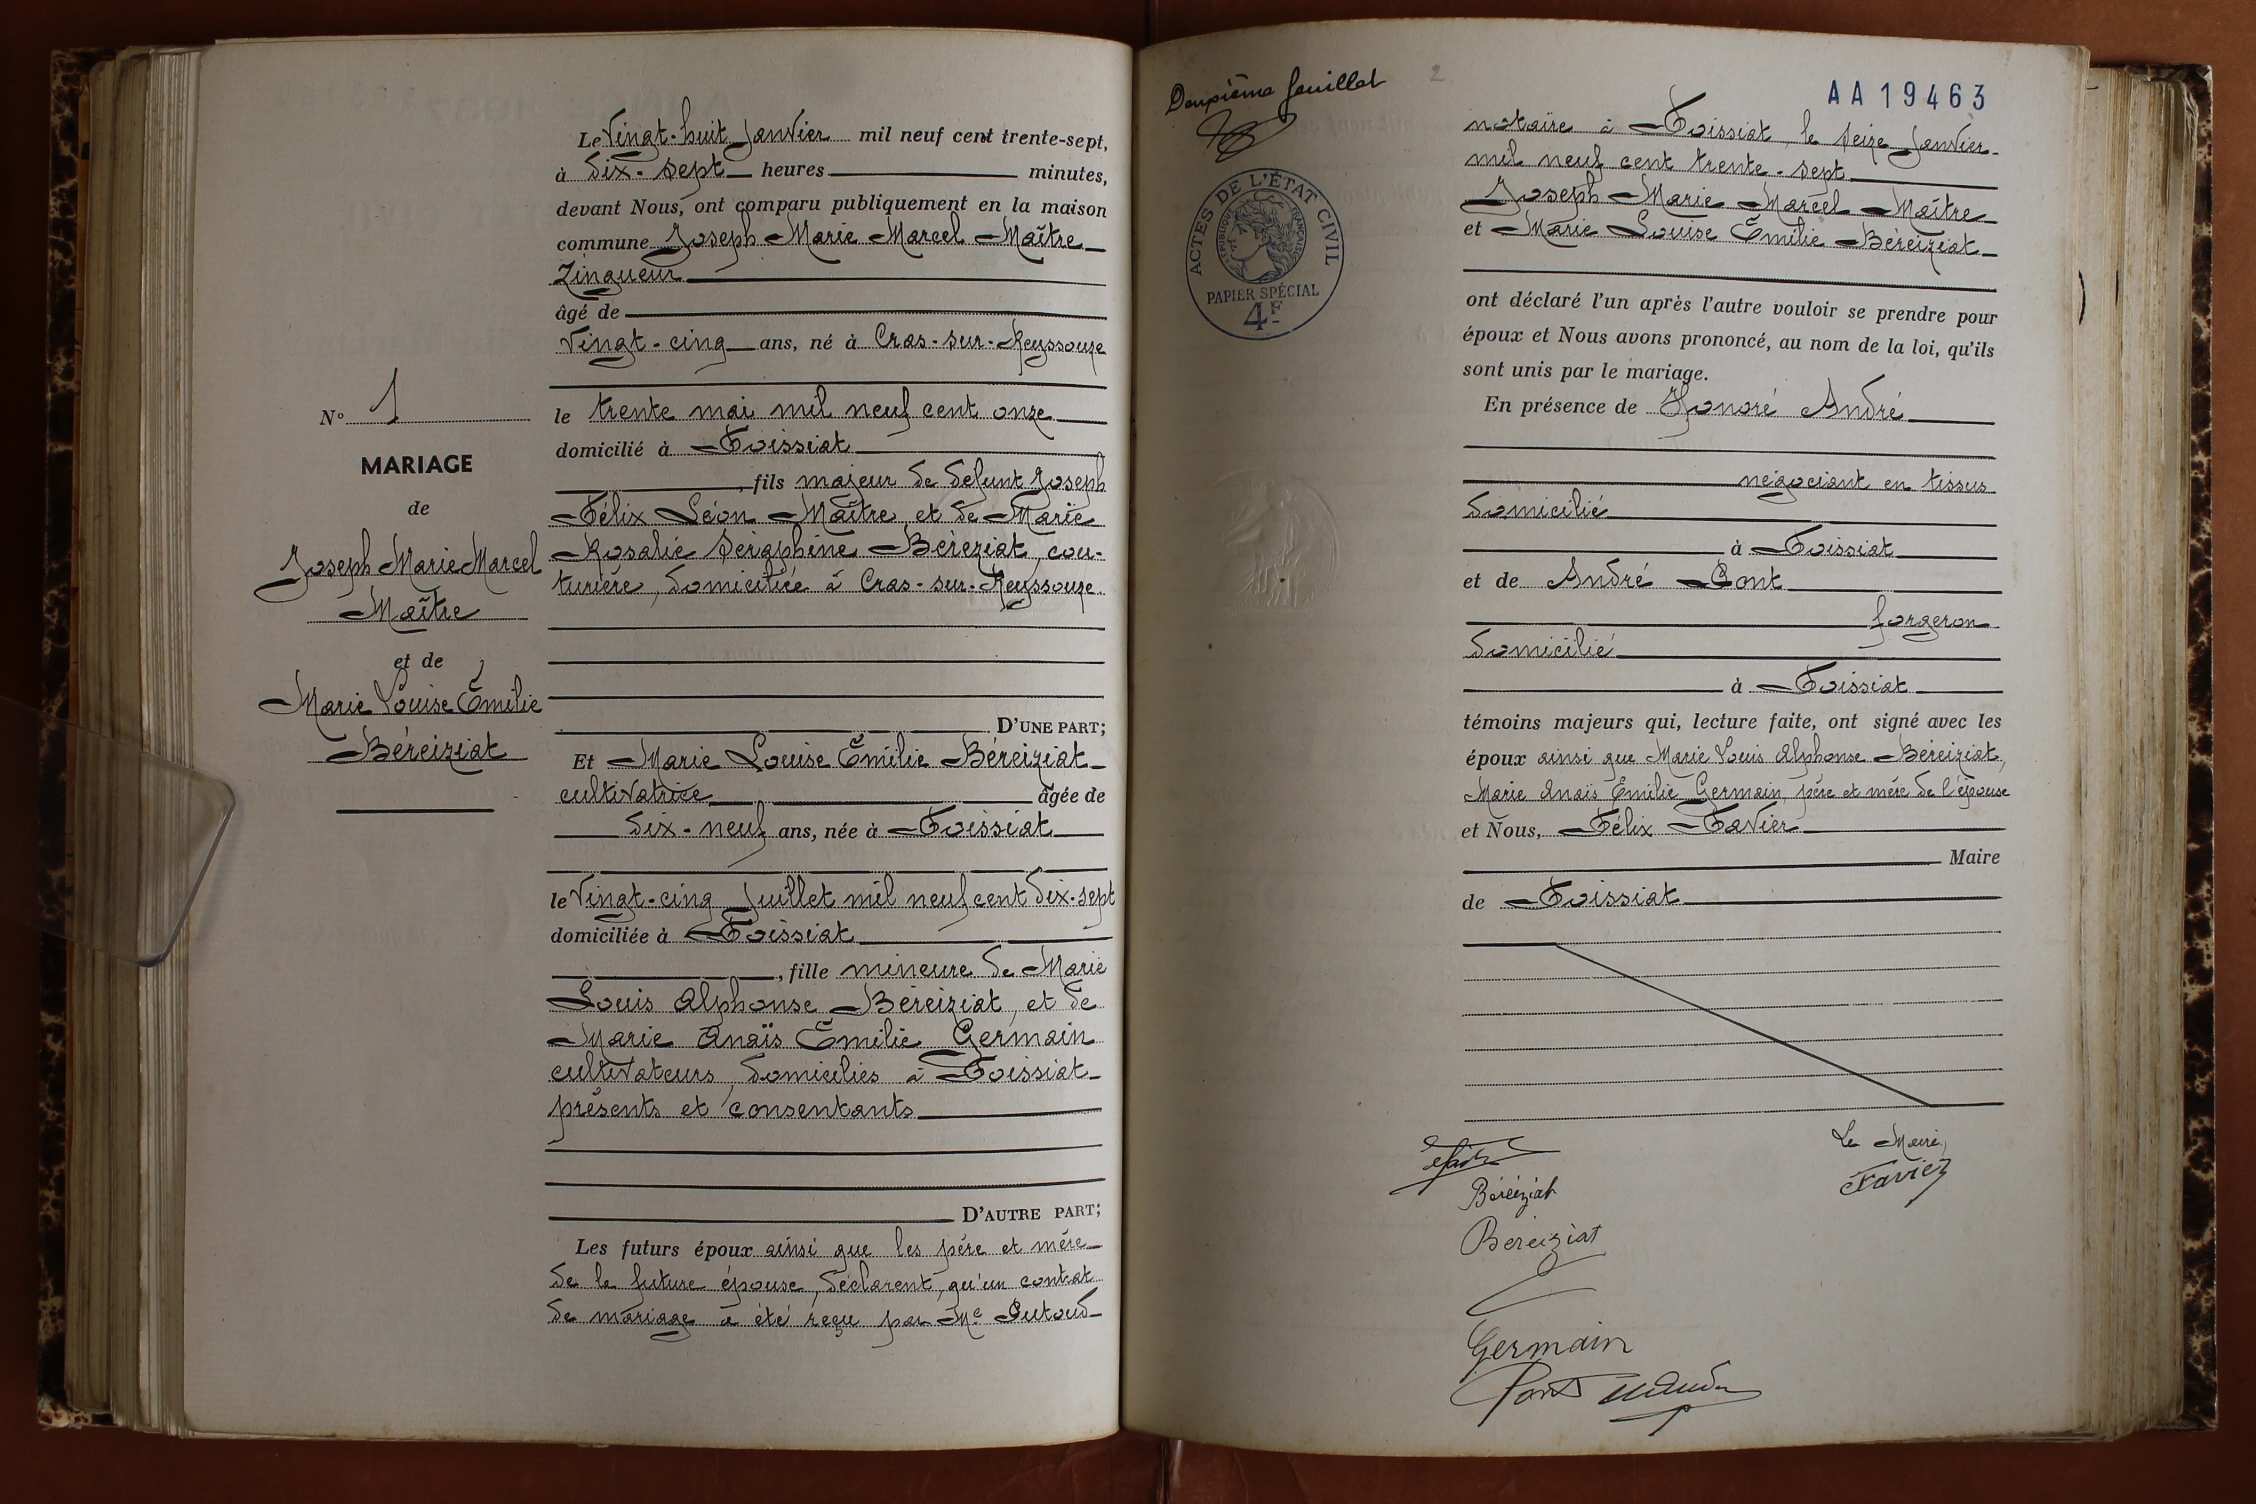 Le Vingt-huit Janvier mil neuf cent trente-sept,
à dix-sept heures minutes,
devant Nous, ont comparu publiquement en la maison
commune Joseph Marie Marcel Maître
Zingueur
âgé de
Vingt-cinq ans, né à Cras-sur-Reyssouze
le trente mai mil neuf cent onze
domicilié à Foissiat
, fils majeur de défunt Joseph
Félix Léon Maître et de Marie
Rosalie Séraphine Béreziat, cou-
turière, domiciliée à Cras-sur-Reyssouze.
D'UNE PART;
Et Marie Louise Émilie Béreiziat
cultivatrice âgée de
dix-neuf ans, née à Foissiat
le Vingt-cinq Juillet mil neuf cent dix-sept
domiciliée à Foissiat
, fille mineure de Marie
Louis Alphonse Béreiziat, et de
Marie Anaïs Émilie Germain
cultivateurs, domiciliés à Foissiat
présents et consentants
D'AUTRE PART;
Les futurs époux ainsi que les père et mère
de la future épouse, déclarent, qu'un contrat
de mariage a été reçu par Me Dutoud
N° 1
MARIAGE
de
Joseph Marie Marcel
Maître
et de
Marie Louise Émilie
Béreiziat
Deuxième feuillet
2
AA19463
ACTES DE L'ÉTAT CIVIL
RÉPUBLIQUE FRANÇAISE
PAPIER SPÉCIAL
4F
notaire à Foissiat, le seize Janvier
mil neuf cent trente-sept
Joseph Marie Marcel Maître
et Marie Louise Émilie Béreiziat
ont déclaré l'un après l'autre vouloir se prendre pour
époux et Nous avons prononcé, au nom de la loi, qu'ils
sont unis par le mariage.
En présence de Honoré André
négociant en tissus
domicilié
à Foissiat
et de André Pont
forgeron
domicilié
à Foissiat
témoins majeurs qui, lecture faite, ont signé avec les
époux ainsi que Marie Louis Alphonse Béreiziat,
Marie Anaïs Émilie Germain, père et mère de l'épouse
et Nous, Félix Favier
Maire
de Foissiat
Le Maire,
Favier
Béréiziat
Béreiziat
Germain
Pont